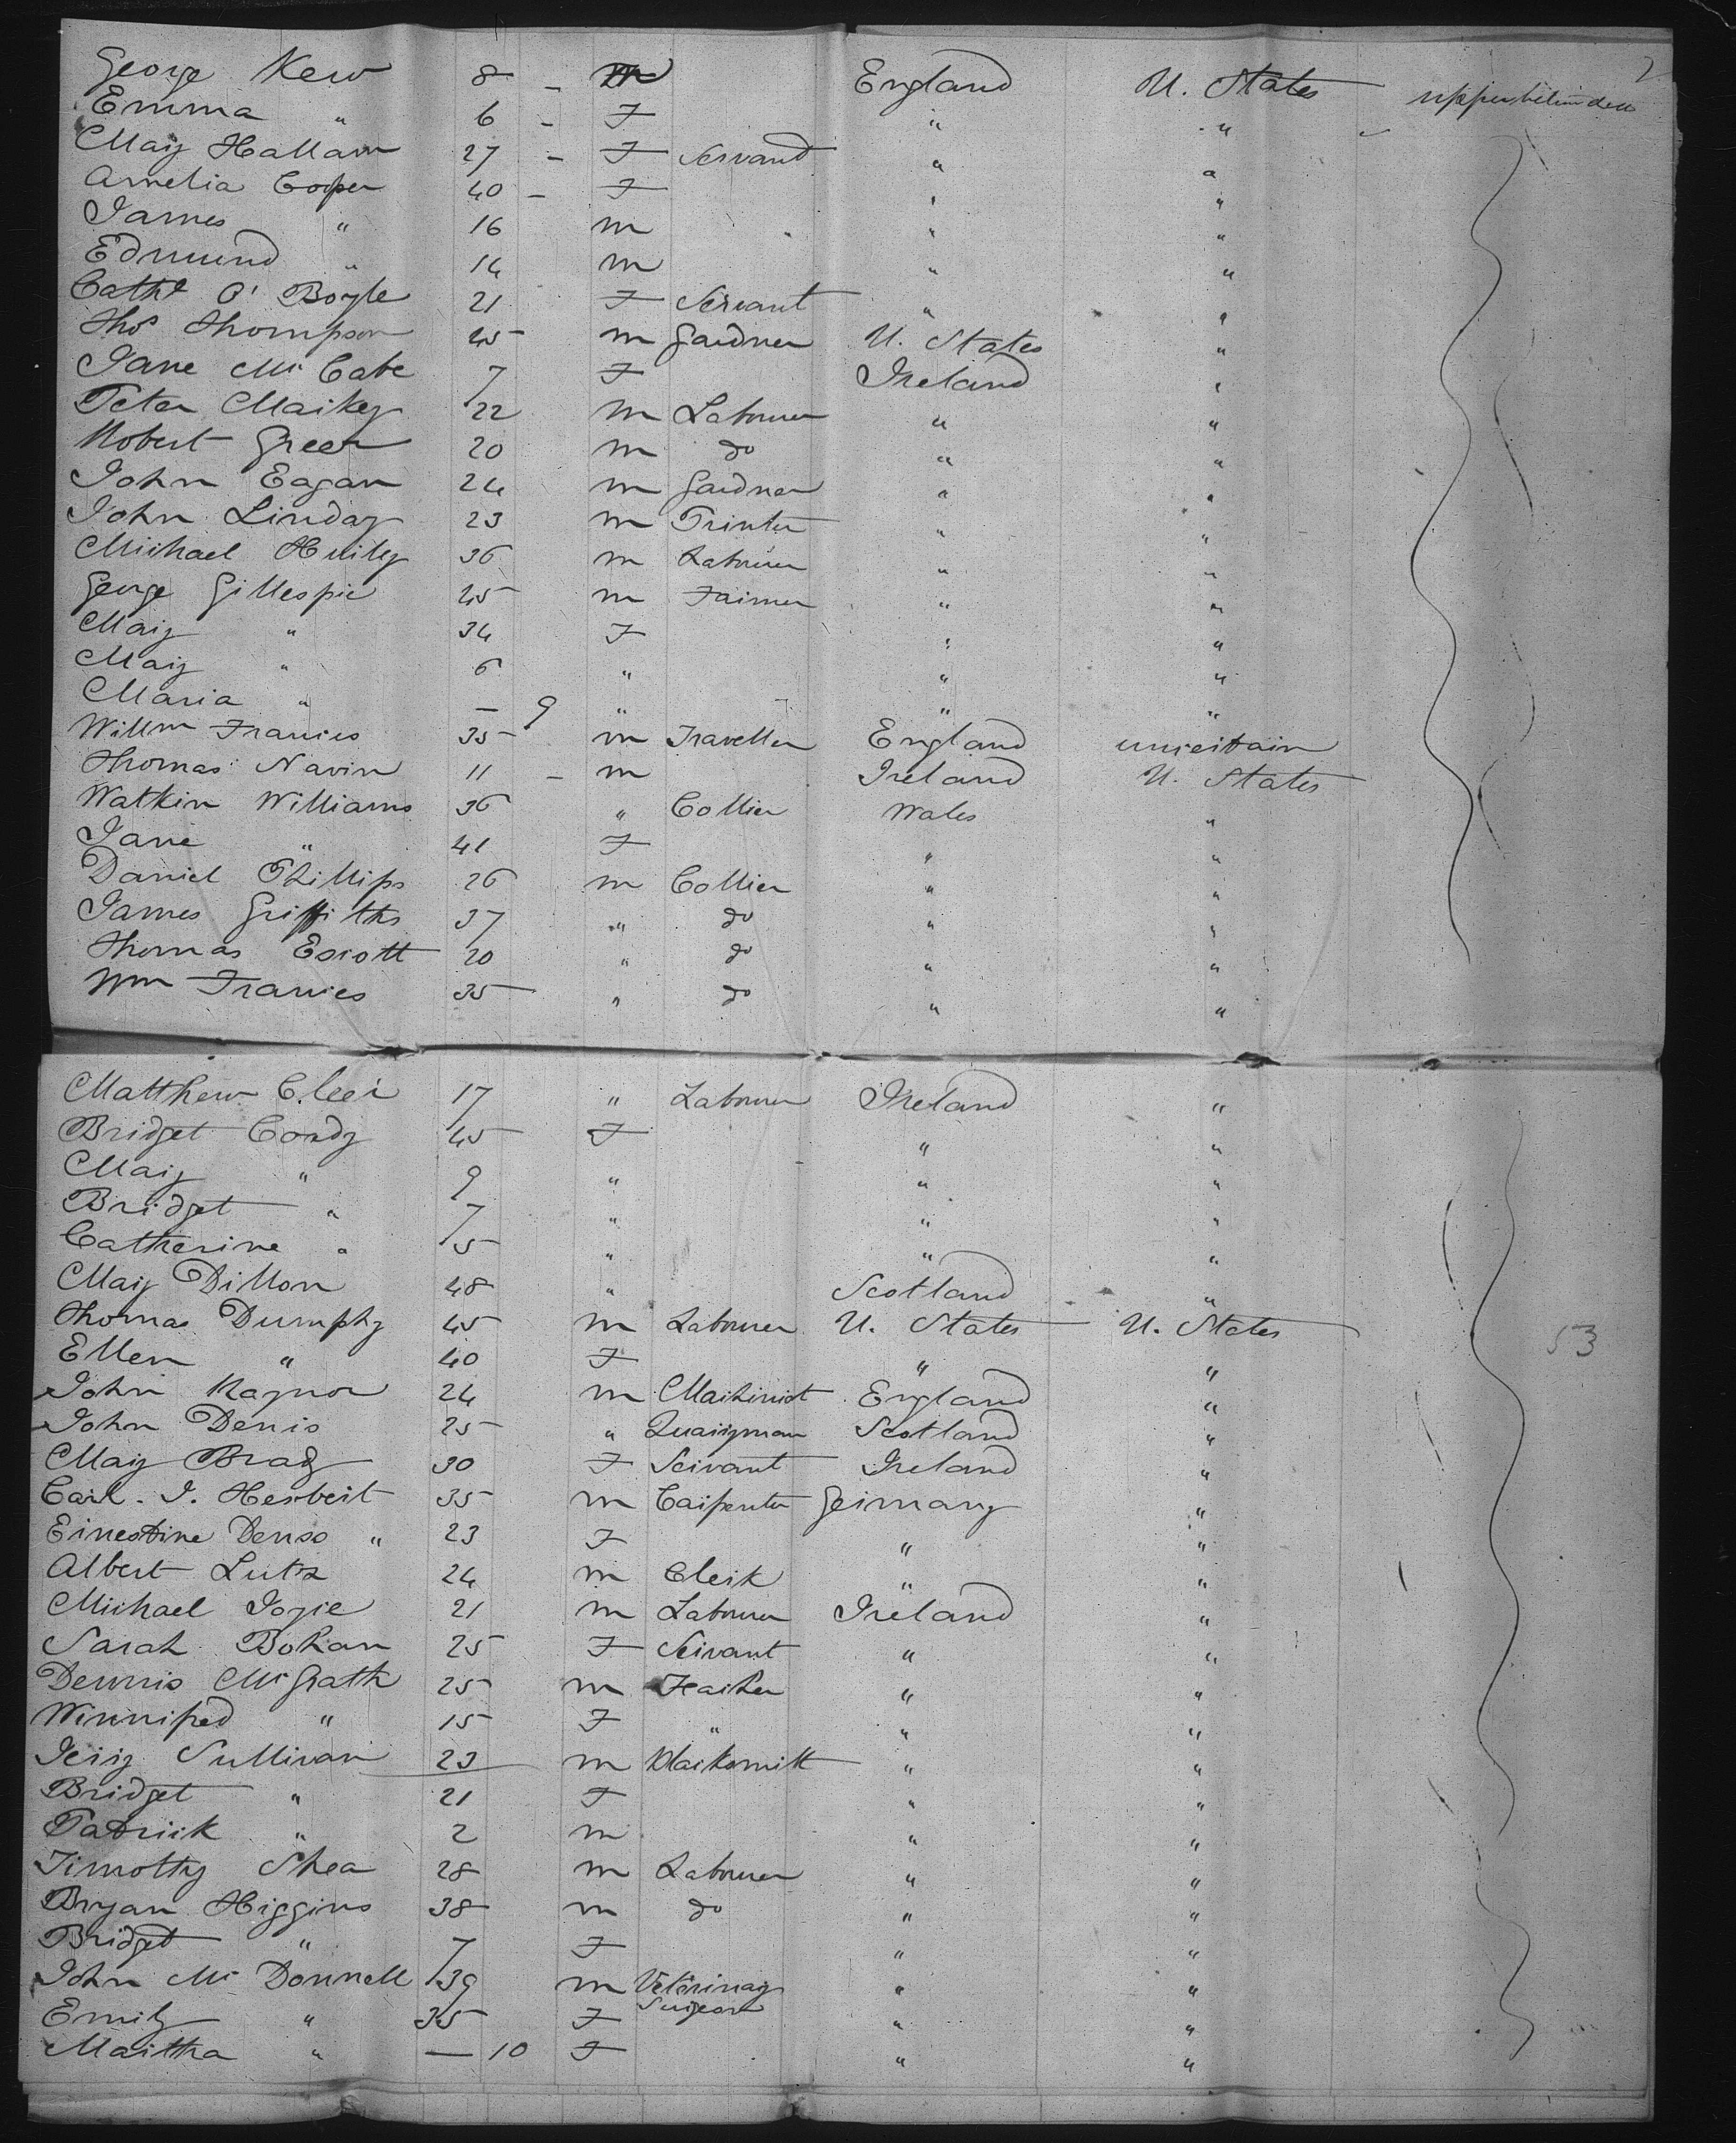 2
George Kew 8 - m England U. States upper between decks
Emma " 6 - F " "
Mary Hallam 27 - F Servant " "
Amelia Cooper 40 - F " "
James " 16 m " "
Edmund " 14 m " "
Cathe O'Boyle 21 F Servant " "
Thos Thompson 45 m Gardner U. States "
Jane McCabe 7 F Ireland "
Peter Markey 22 m Labourer " "
Robert Green 20 m do " "
John Eagan 24 m Gardner " "
John Linday 23 m Printer " "
Michael Huiley 36 m Labourer " "
George Gillespie 45 m Farmer " "
Mary " 34 F " "
Mary " 6 " " "
Maria " - 9 " " "
Willm Francies 35 m Traveller England uncertain
Thomas Navin 11 - m Ireland U. States
Watkin Williams 36 " Collier Wales "
Jane " 41 F " "
Daniel Phillips 26 m Collier " "
James Griffiths 37 " do " "
Thomas Escott 20 " do " "
Wm Francies 35 " do " "
Matthew Cleer 17 " Labourer Ireland "
Bridget Condy 45 F " "
Mary " 9 " " "
Bridget " 7 " " "
Catherine " 5 " " "
Mary Dillon 48 " Scotland "
Thomas Dumphy 45 m Labourer U. States U. States 53
Ellen " 40 F " "
John Raynor 24 m Machinist England "
John Denis 25 " Quarryman Scotland "
Mary Brady 30 F Servant Ireland "
Carl. J. Herbert 35 m Carpenter Germany "
Ernestine Denso " 23 F " "
Albert Lutz 24 m Clerk " "
Michael Joyie 21 m Labourer Ireland "
Sarah Bohan 25 F Servant " "
Dennis McGrath 25 m " "
Winnifred " 15 F " " "
Jerry Sullivan 23 m Blacksmith " "
Bridget " 21 F " "
Patrick " 2 m " "
Timothy Shea 28 m Labourer " "
Bryan Higgins 38 m do " "
Bridget " 7 F " "
John McDonnell 39 m Veterinary Surgeon " "
Emily " 35 F " "
Martha " - 10 F " "